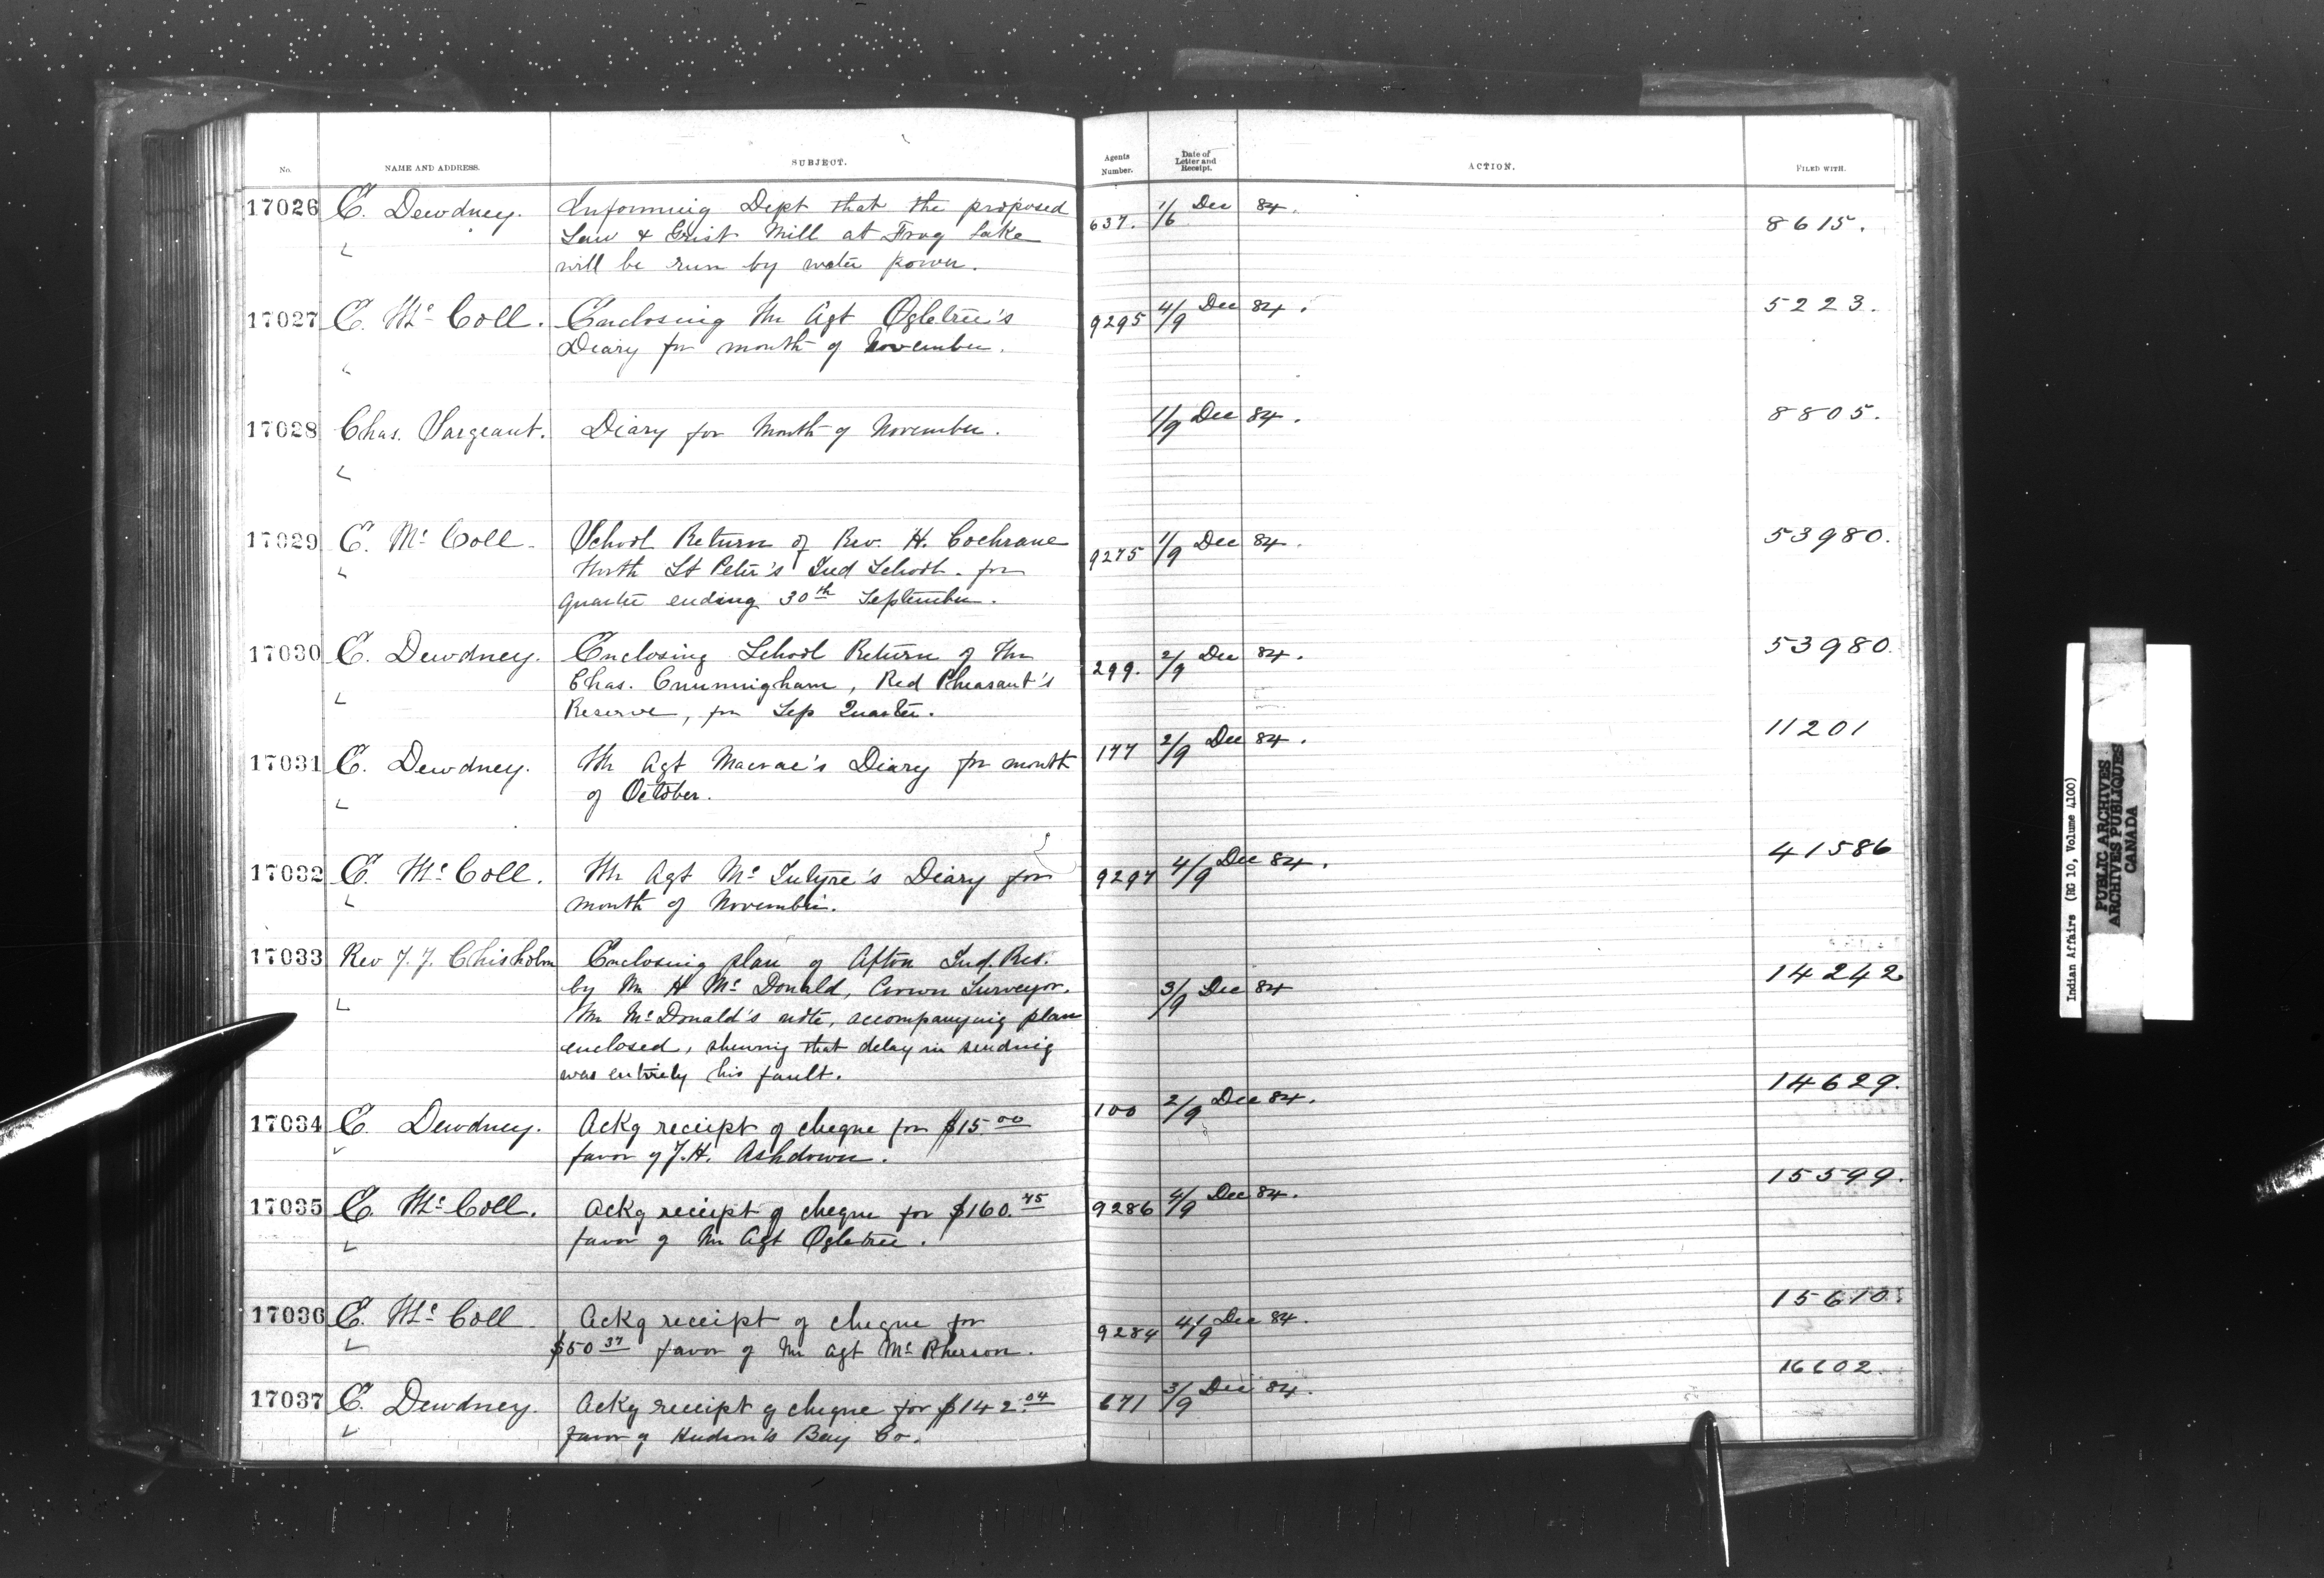 No. NAME AND ADDRESS. SUBJECT. Agents Number. Date of Letter and Receipt. ACTION. FILED WITH.
17026 E. Dewdney. Informing Dept that the proposed 637. 1/6 Dec 84. 8615.
" Saw & Grist Mill at Frog Lake
will be run by water power.
17027 E. McColl. Enclosing Mr Agt Ogletree's 9295 4/9 Dec 84. 5223.
" Diary for month of November.
17028 Chas. Sargeant. Diary for Month of November. 1/9 Dec 84. 8805.
"
17029 E. McColl. School Return of Rev. H. Cochrane 9275 1/9 Dec 84. 53980.
" North St Peter's Ind School. for
quarter ending 30th September.
17030 E. Dewdney. Enclosing School Return of Mr 299. 2/9 Dec 84. 53980
" Chas. Cunningham, Red Pheasant's
Reserve, for Sep Quarter.
17031 E. Dewdney. Mr Agt Macrae's Diary for month 177 2/9 Dec 84. 11201
" of October.
17032 E. McColl. Mr Agt McIntyre's Diary for 9297 4/9 Dec 84. 41586
" month of November.
17033 Rev J. J. Chisholm Enclosing plan of Afton Ind. Res. 3/9 Dec 84 14242
" by Mr H McDonald, Crown Surveyor.
Mr McDonald's note, accompanying plan
enclosed, shewing that delay in sending
was entirely his fault.
17034 E. Dewdney. Ackg receipt of cheque for $15.00 100 2/9 Dec 84. 14629.
" favor of J.H. Ashdown.
17035 E. McColl. Ackg receipt of cheque for $160.75 9286 4/9 Dec 84. 15599.
" favor of Mr Agt Ogletree.
17036 E. McColl. Ackg receipt of cheque for 9284 4/9 Dec 84. 15610.
" $50 37 favor of Mr Agt McPherson.
17037 E. Dewdney. Ackg receipt of cheque for $142.04 671 3/9 Dec 84. 16602.
" favor of Hudson's Bay Co.
Indian Affairs (RG 10, Volume 4100)
PUBLIC ARCHIVES
ARCHIVES PUBLIQUES
CANADA